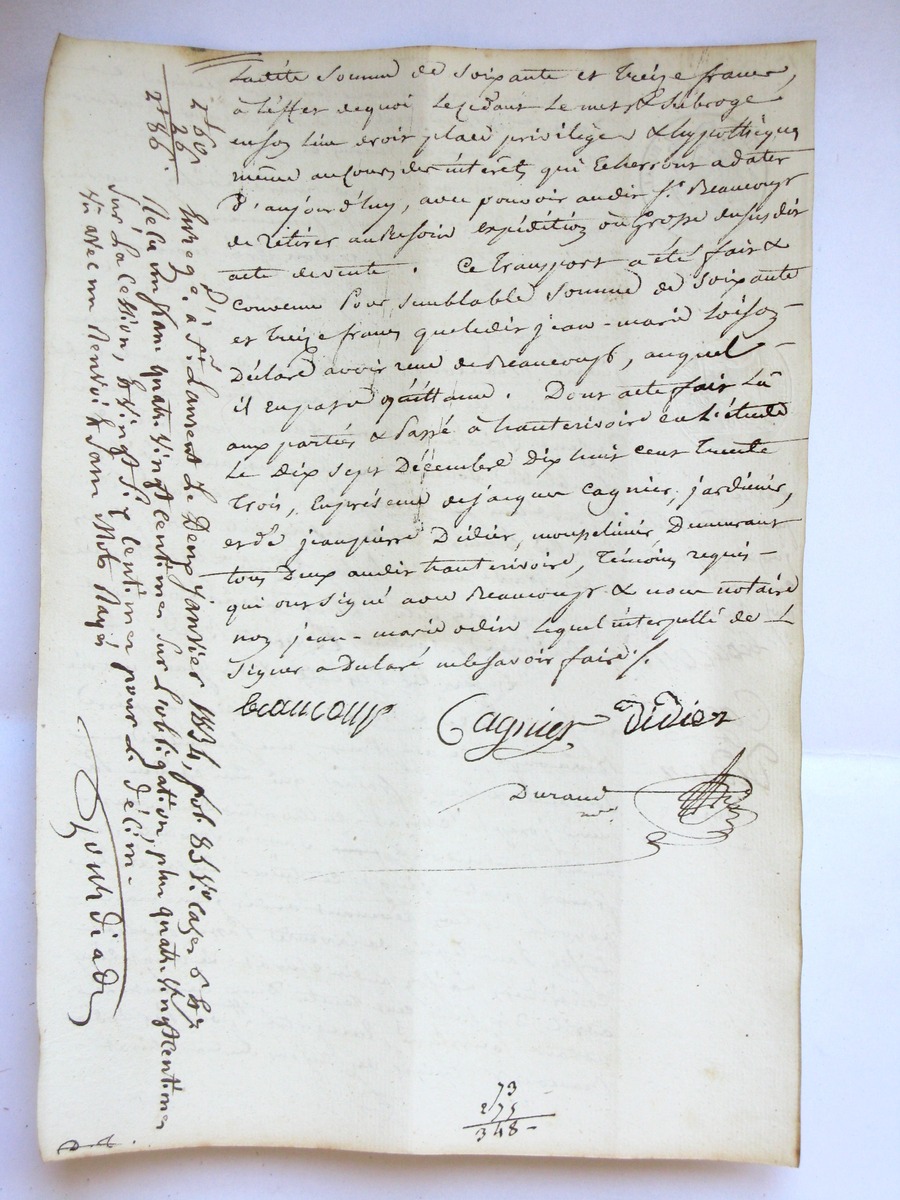 Ladite Somme de Soixante et treize francs,
à l'effet de quoi le cédant le met & Subroge
en son lieu droit place privilège & hypothèques
même au cours des intérêts qui Echerront a dater
D'aujourd'huy, avec pouvoir audit Sr. Beaucoup
de Retirer au Besoin expédition ou Grosse du susdit
acte de vente. Ce transport a été fait &
convenu Pour semblable Somme de Soixante
et treize francs que ledit jean-marie
Déclaré avoir reçu de Beaucoup, auquel
il en passe quittance. Dont acte fait Lû
aux parties & Passé à hauterivoire en L'étude
Le Dix sept Décembre Dix huit cent trente
trois, En présence de jacques Cagnier, jardinier,
et de jean pierre Didier, mousselinier, Demeurant
tous Deux audit hauterivoire, Témoins requis
qui ont signé avec Beaucoup & nous notaire
non jean-marie lequel interpellé de
Signer a Déclaré ne le savoir faire ./.
Beaucoup Cagnier Didier
Durand
73
275
348 -
2f 60c
26
2f 86c.
Enreg. à St. Laurent Le Deux janvier 1834, fol. 85 Vo. cases 6 &
Reçu un franc quatre vingt centimes sur l'obligation, plus quatre vingt centimes
Sur La Cession, & vingt six centimes pour le décime
Vu avec un Renvoi & Sans Mots Rayés